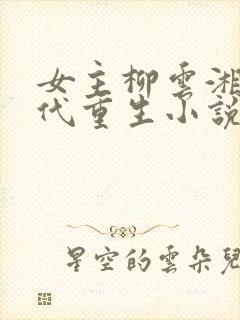 女主柳雲湘
代重生小說
星空的雲朵兒